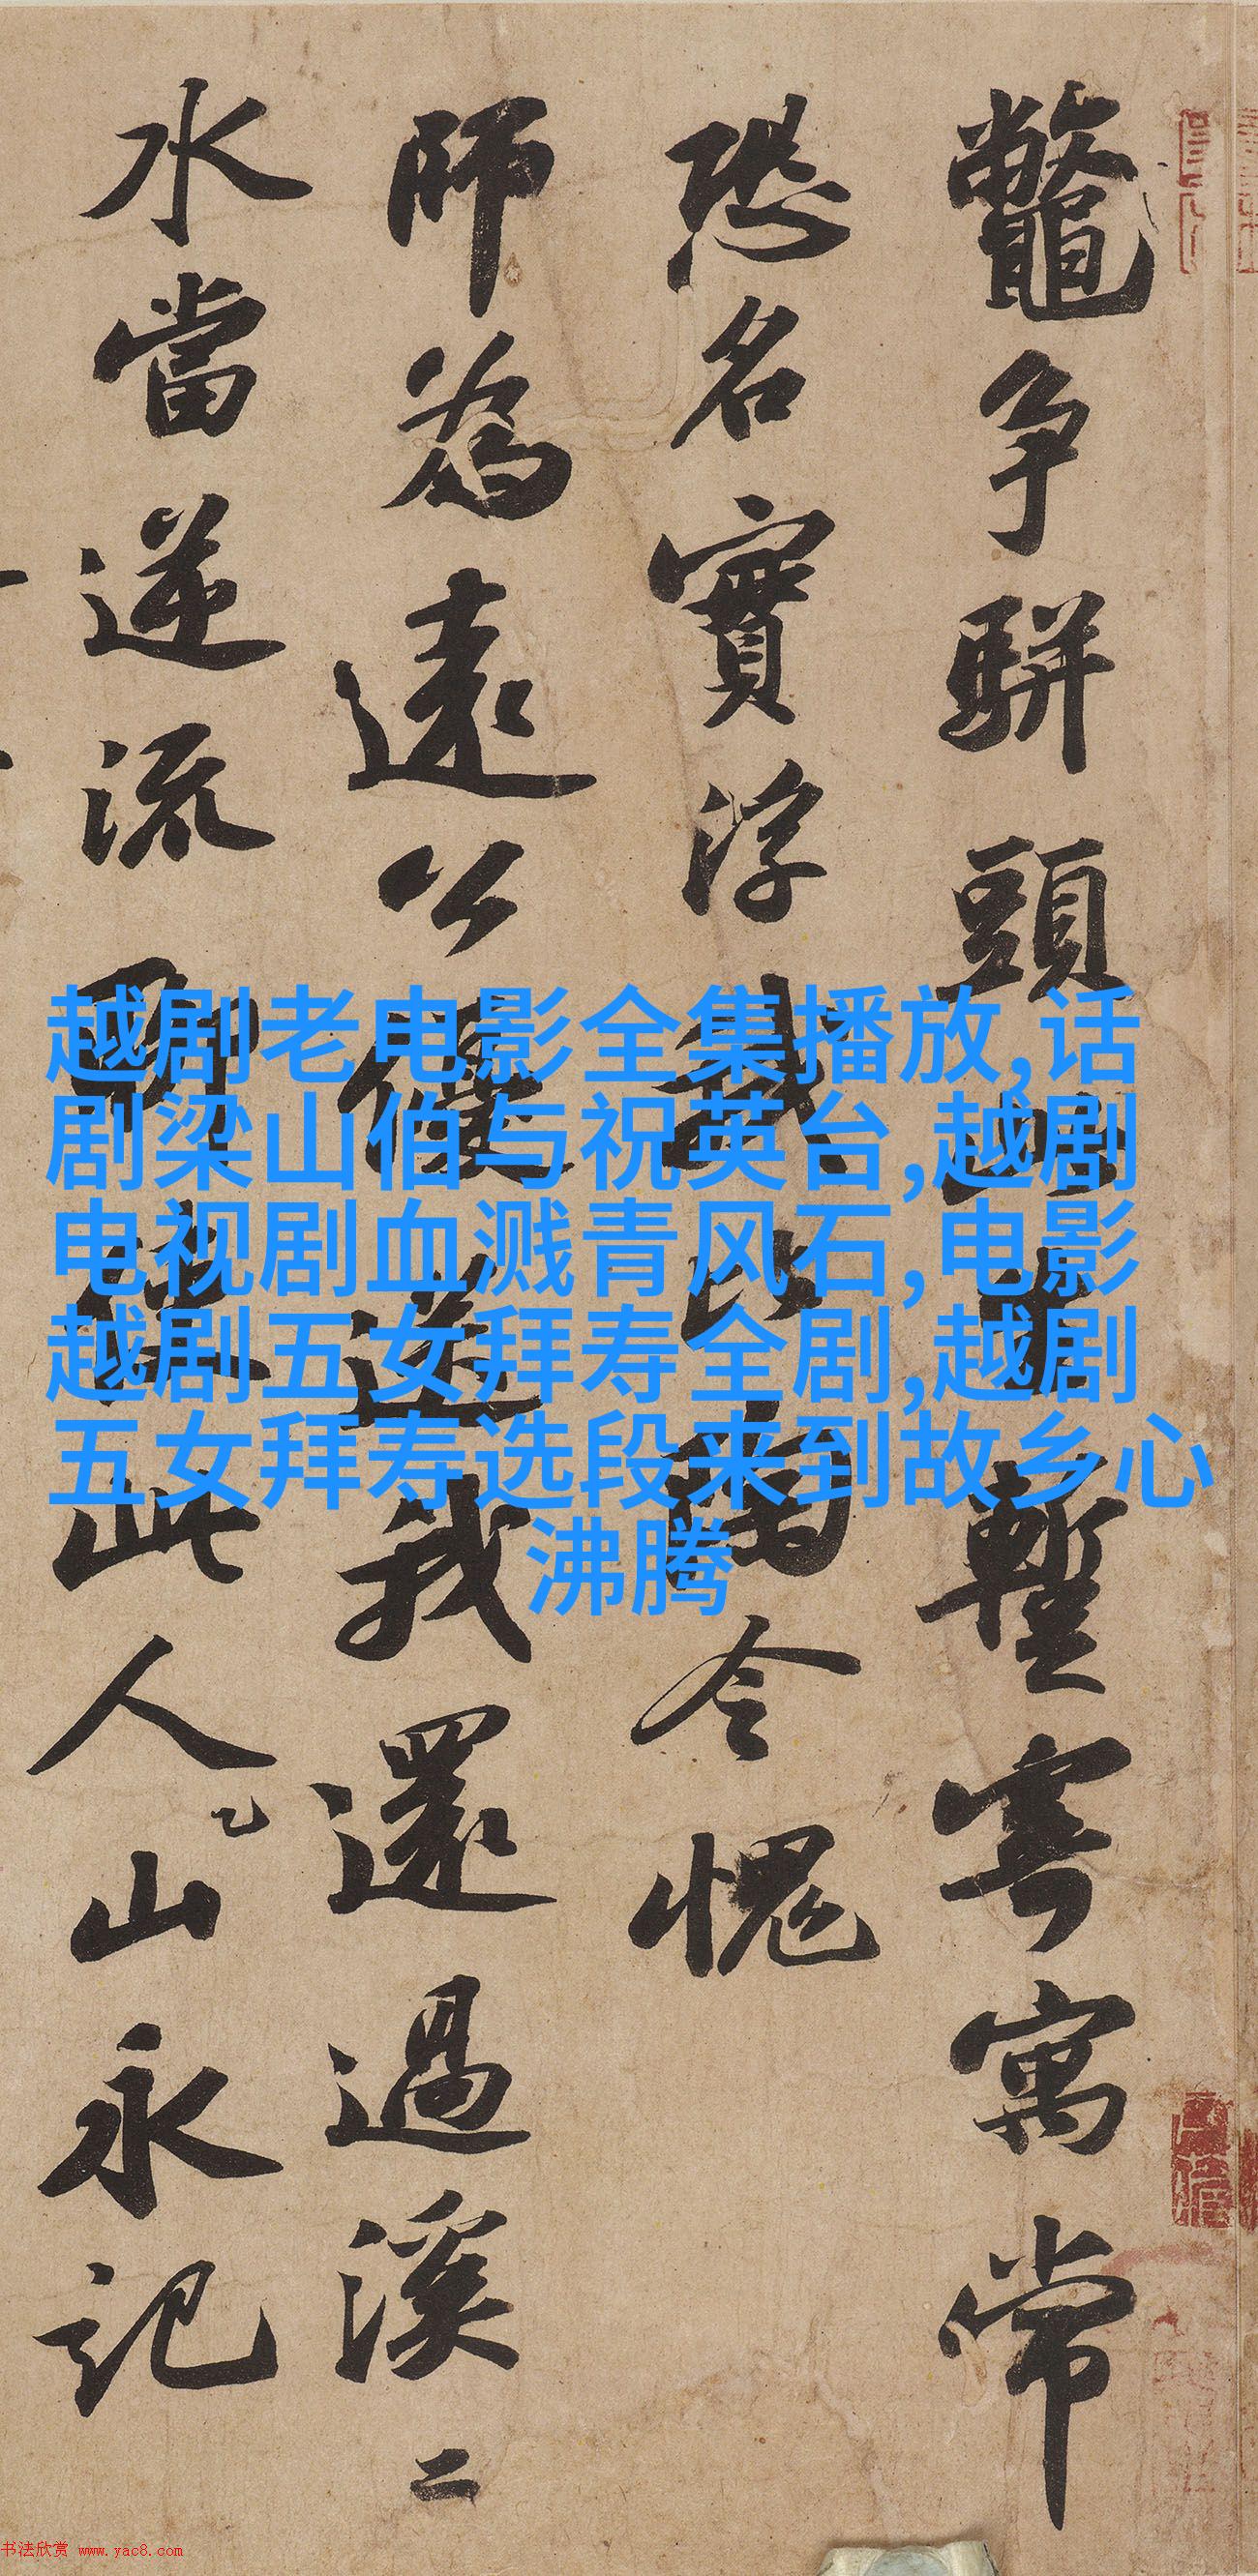 鼈争駢頭此生暫寄寓常
恐名實浮我比陶令愧
師為遠公優送我還過溪二
水當逆流聊使此人山永記
越剧老电影全集播放,话
剧梁山伯与祝英台,越剧
电视剧血溅青风石,电影
越剧五女拜寿全剧,越剧
五女拜寿选段来到故乡心
沸腾
书法欣赏 www.yac8.com